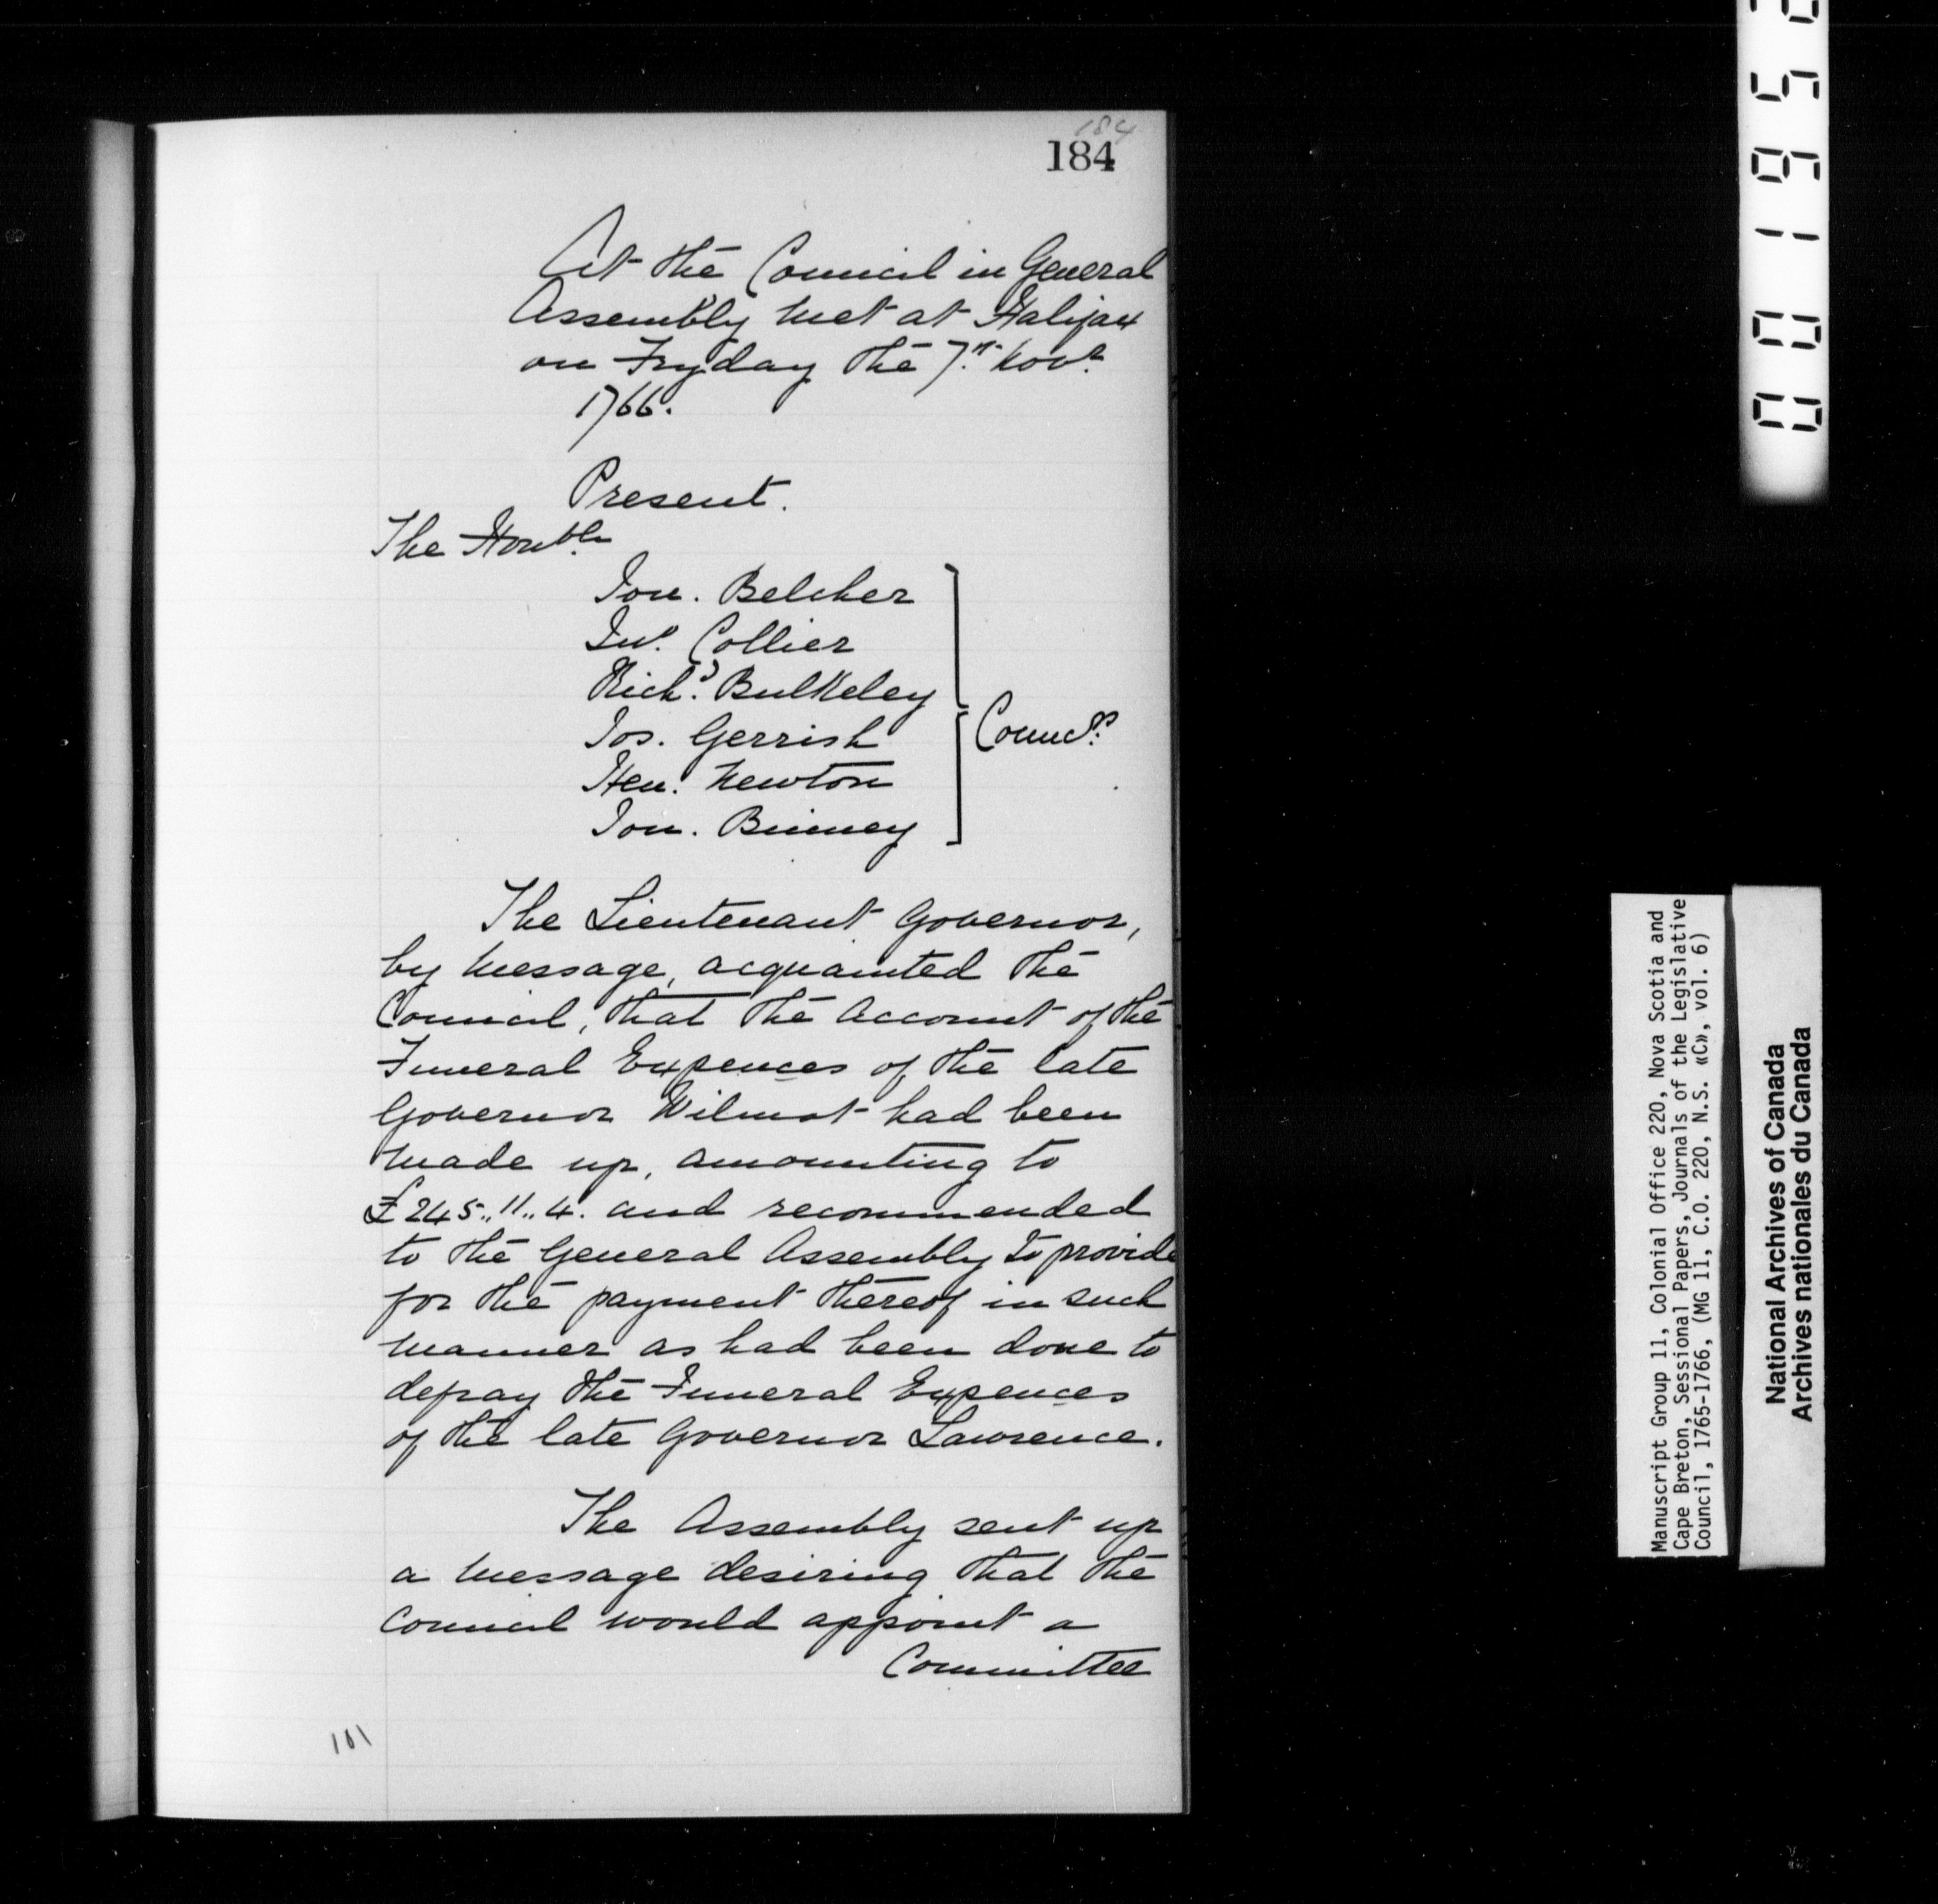 184
184
At the Council in General
Assembly met at Halifax
on Fryday the 7.th Novr.
1766.
Present.
The Honble.
Jon. Belcher
Jno. Collier
Richd. Bulkeley
Jos. Gerrish
Hen. Newton
Jon. Binney
Councrs.
The Lieutenant Governor,
by message, acquainted the
Council, that the Account of the
Funeral Expences of the late
Governor Wilmot had been
made up, amounting to
£245,,11,,4. and recommended
to the General Assembly to provide
for the payment thereof in such
manner as had been done to
defray the Funeral Expences
of the late Governor Lawrence.
The Assembly sent up
a message desiring that the
Council would appoint a
Committee
101
Manuscript Group 11, Colonial Office 220, Nova Scotia and
Cape Breton, Sessional Papers, Journals of the Legislative
Council, 1765-1766, (MG 11, C.O. 220, N.S. «C», vol. 6)
National Archives of Canada
Archives nationales du Canada